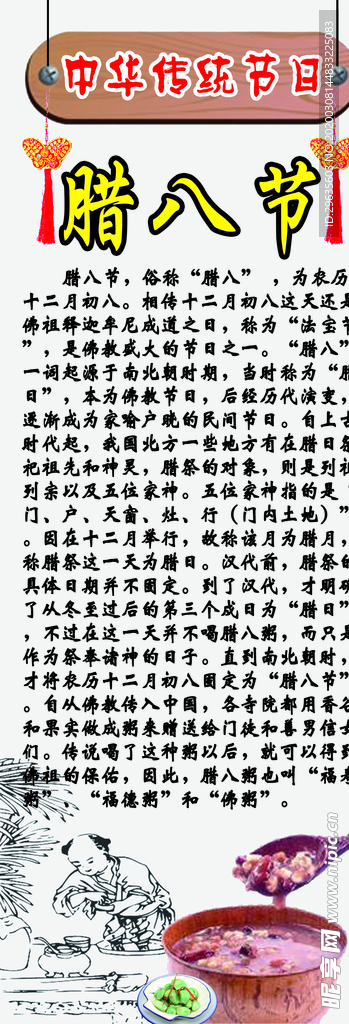 中华传统节日
腊八节
腊八节，俗称“腊八” ，为农历
十二月初八。相传十二月初八这天还是
佛祖释迦牟尼成道之日，称为“法宝节
”，是佛教盛大的节日之一。“腊八”
一词起源于南北朝时期，当时称为“腊
日”，本为佛教节日，后经历代演变，
逐渐成为家喻户晓的民间节日。自上古
时代起，我国北方一些地方有在腊日祭
祀祖先和神灵，腊祭的对象，则是列祖
列宗以及五位家神。五位家神指的是“
门、户、天窗、灶、行（门内土地）”
。因在十二月举行，故称该月为腊月，
称腊祭这一天为腊日。汉代前，腊祭的
具体日期并不固定。到了汉代，才明确
了从冬至过后的第三个戍日为“腊日”
，不过在这一天并不喝腊八粥，而只是
作为祭奉诸神的日子。直到南北朝时，
才将农历十二月初八固定为“腊八节”
。自从佛教传入中国，各寺院都用香谷
和果实做成粥来赠送给门徒和善男信女
们。传说喝了这种粥以后，就可以得到
佛祖的保佑，因此，腊八粥也叫“福寿
粥”、“福德粥”和“佛粥”。
ID:29635603 NO:20200308144833225083
昵享网 www.nipic.cn